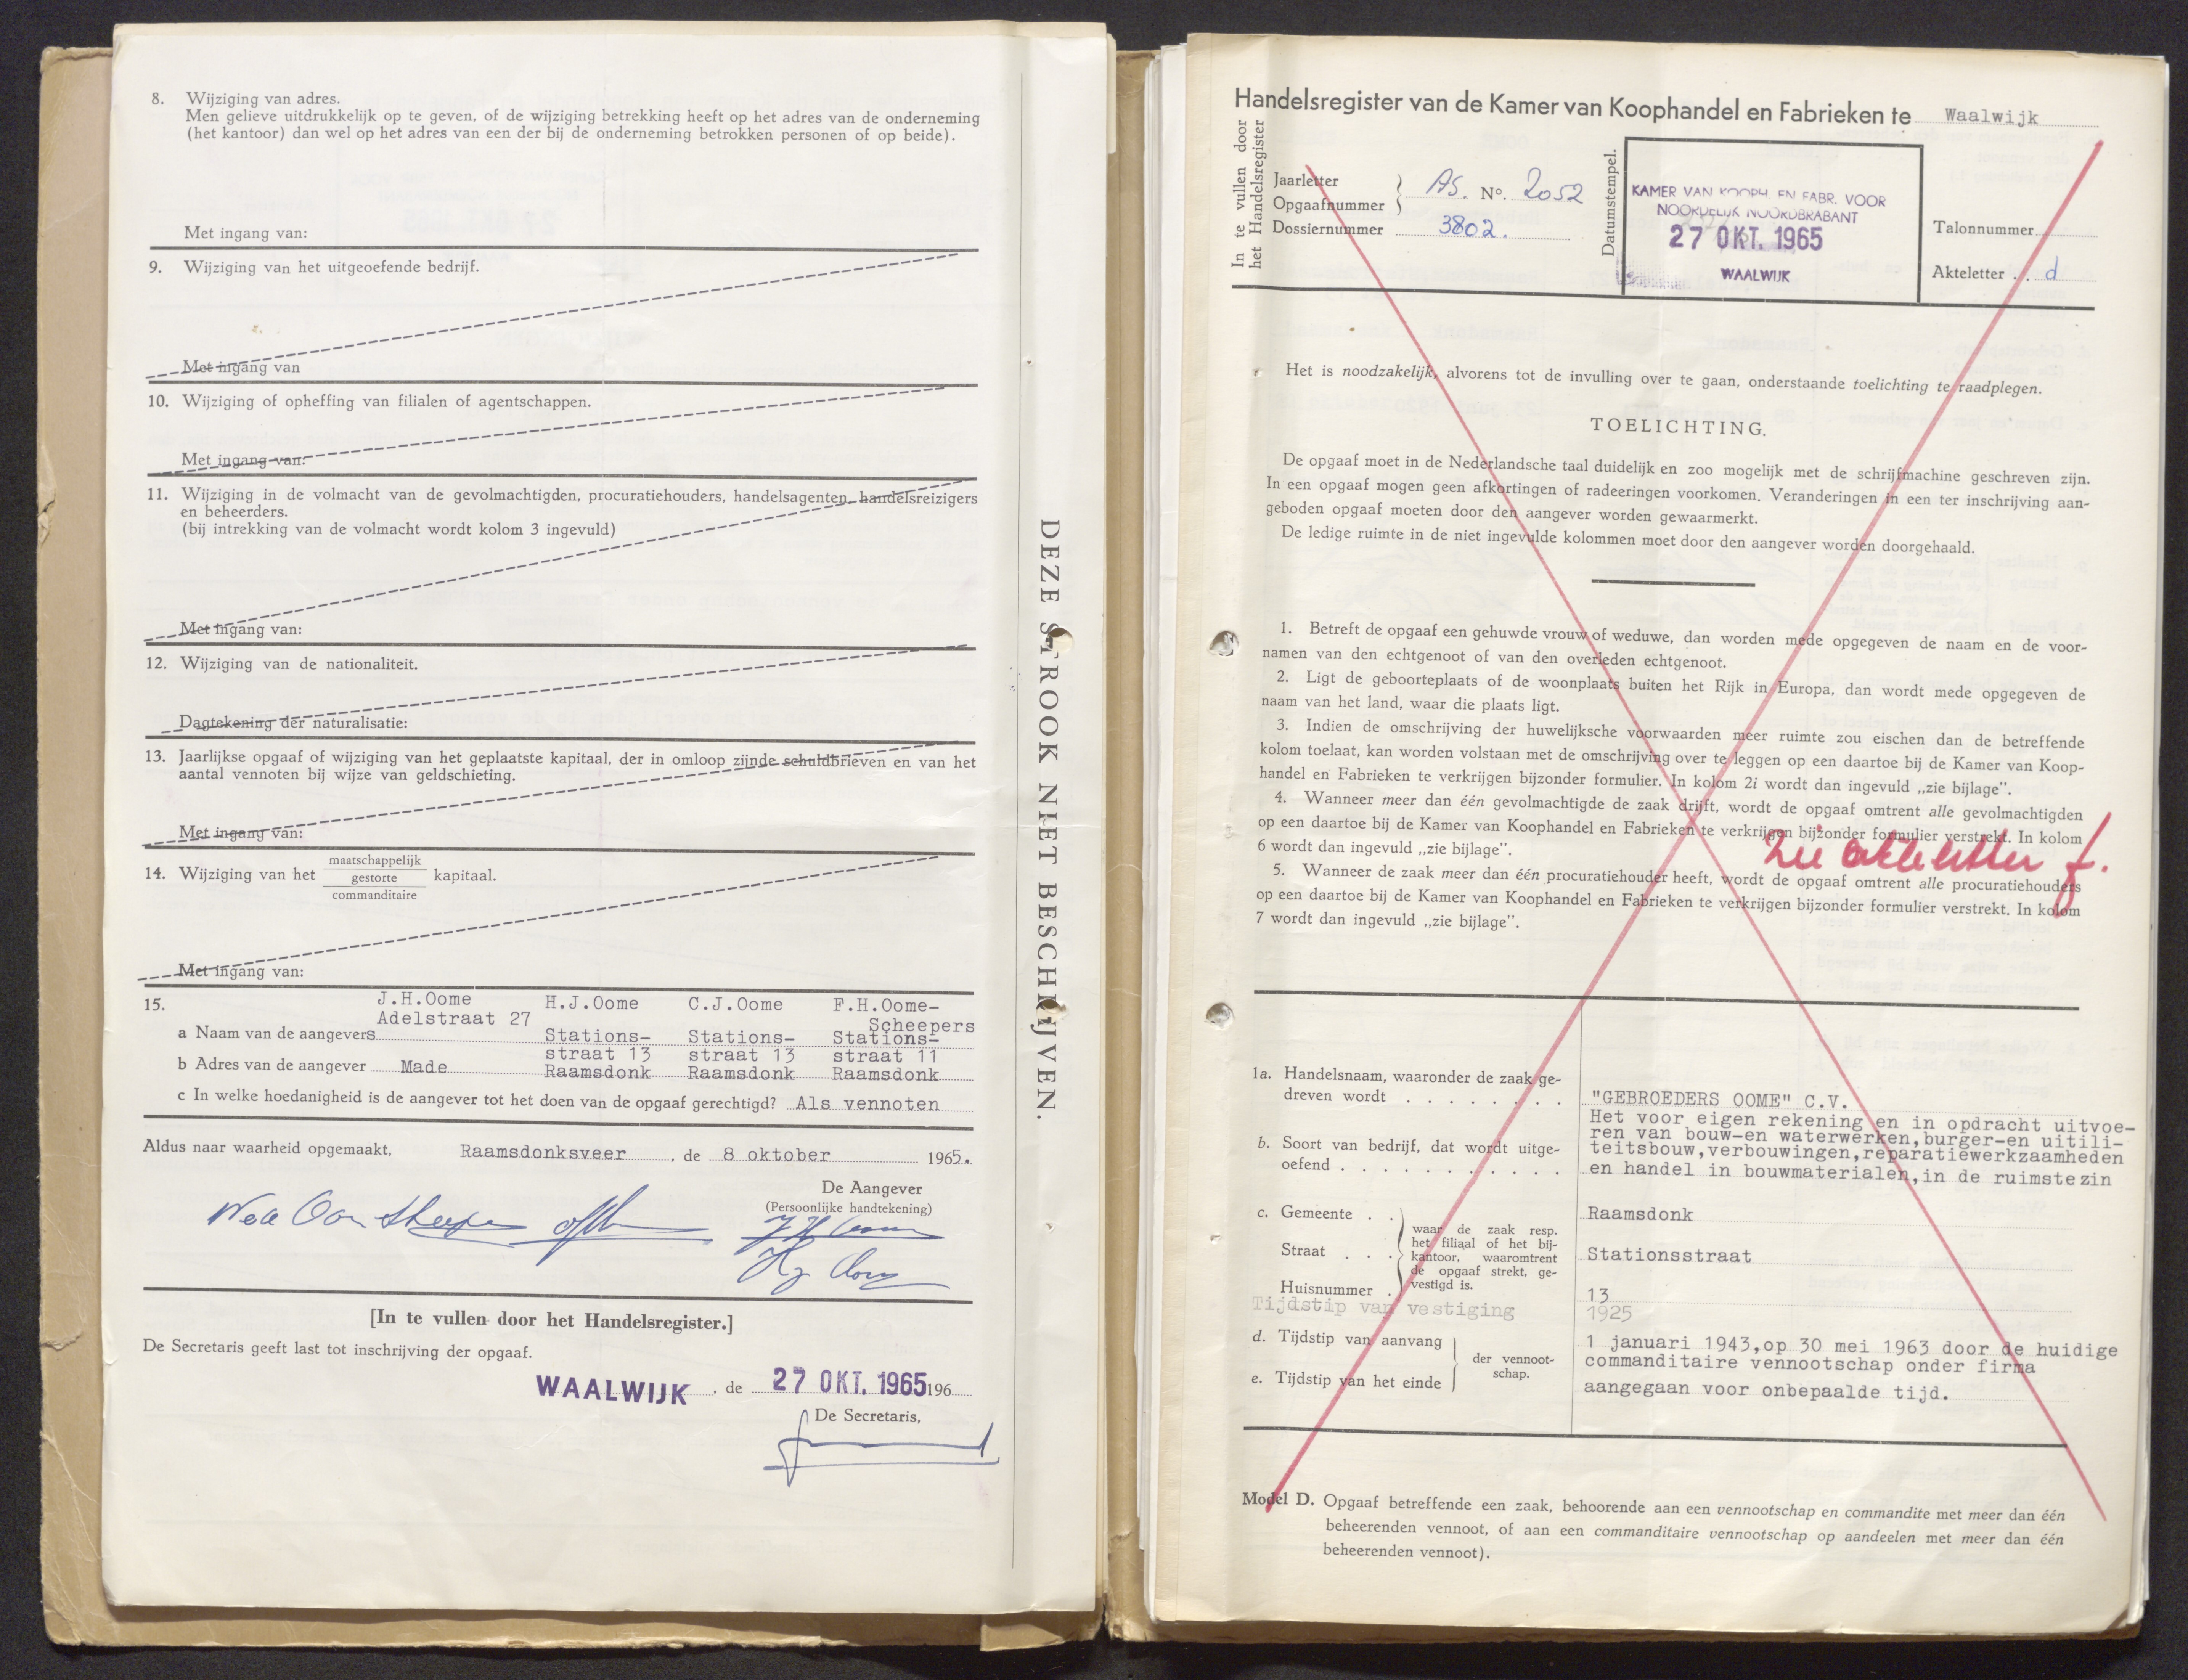 8. Wijziging van adres.
Men gelieve uitdrukkelijk op te geven, of de wijziging betrekking heeft op het adres van de onderneming
(het kantoor) dan wel op het adres van een der bij de onderneming betrokken personen of op beide).
Met ingang van:
9. Wijziging van het uitgeoefende bedrijf.
Met ingang van
10. Wijziging of opheffing van filialen of agentschappen.
Met ingang van:
11. Wijziging in de volmacht van de gevolmachtigden, procuratiehouders, handelsagenten, handelsreizigers
en beheerders.
(bij intrekking van de volmacht wordt kolom 3 ingevuld)
Met ingang van:
12. Wijziging van de nationaliteit.
Dagtekening der naturalisatie:
13. Jaarlijkse opgaaf of wijziging van het geplaatste kapitaal, der in omloop zijnde schuldbrieven en van het
aantal vennoten bij wijze van geldschieting.
Met ingang van:
maatschappelijk
14. Wijziging van het gestorte kapitaal.
commanditaire
Met ingang van:
15. J.H.Oome H.J.Oome C.J.Oome F.H.Oome-
Adelstraat 27 Scheepers
a Naam van de aangevers Stations- Stations- Stations-
straat 13 straat 13 straat 11
b Adres van de aangever Made Raamsdonk Raamsdonk Raamsdonk
c In welke hoedanigheid is de aangever tot het doen van de opgaaf gerechtigd? Als vennoten
Aldus naar waarheid opgemaakt, Raamsdonksveer, de 8 oktober 1965.
De Aangever
(Persoonlijke handtekening)
[In te vullen door het Handelsregister.]
De Secretaris geeft last tot inschrijving der opgaaf.
WAALWIJK, de 27 OKT. 1965 196
De Secretaris,
DEZE STROOK NIET BESCHRIJVEN.
Handelsregister van de Kamer van Koophandel en Fabrieken te Waalwijk
In te vullen door
het Handelsregister
Jaarletter
Opgaafnummer AS. No. 2052
Dossiernummer 3802.
Datumstempel.
KAMER VAN KOOPH. EN FABR. VOOR
NOORDELIJK NOORDBRABANT
27 OKT. 1965
WAALWIJK
Talonnummer
Akteletter . . d
Het is noodzakelijk, alvorens tot de invulling over te gaan, onderstaande toelichting te raadplegen.
TOELICHTING.
De opgaaf moet in de Nederlandsche taal duidelijk en zoo mogelijk met de schrijfmachine geschreven zijn.
In een opgaaf mogen geen afkortingen of radeeringen voorkomen. Veranderingen in een ter inschrijving aan-
geboden opgaaf moeten door den aangever worden gewaarmerkt.
De ledige ruimte in de niet ingevulde kolommen moet door den aangever worden doorgehaald.
1. Betreft de opgaaf een gehuwde vrouw of weduwe, dan worden mede opgegeven de naam en de voor-
namen van den echtgenoot of van den overleden echtgenoot.
2. Ligt de geboorteplaats of de woonplaats buiten het Rijk in Europa, dan wordt mede opgegeven de
naam van het land, waar die plaats ligt.
3. Indien de omschrijving der huwelijksche voorwaarden meer ruimte zou eischen dan de betreffende
kolom toelaat, kan worden volstaan met de omschrijving over te leggen op een daartoe bij de Kamer van Koop-
handel en Fabrieken te verkrijgen bijzonder formulier. In kolom 2i wordt dan ingevuld „zie bijlage”.
4. Wanneer meer dan één gevolmachtigde de zaak drijft, wordt de opgaaf omtrent alle gevolmachtigden
op een daartoe bij de Kamer van Koophandel en Fabrieken te verkrijgen bijzonder formulier verstrekt. In kolom
6 wordt dan ingevuld „zie bijlage”.
Zie akteletter f.
5. Wanneer de zaak meer dan één procuratiehouder heeft, wordt de opgaaf omtrent alle procuratiehouders
op een daartoe bij de Kamer van Koophandel en Fabrieken te verkrijgen bijzonder formulier verstrekt. In kolom
7 wordt dan ingevuld „zie bijlage”.
1a. Handelsnaam, waaronder de zaak ge-
dreven wordt . . . . . . . "GEBROEDERS OOME" C.V.
Het voor eigen rekening en in opdracht uitvoe-
b. Soort van bedrijf, dat wordt uitge- ren van bouw-en waterwerken,burger-en uitili-
teitsbouw,verbouwingen,reparatiewerkzaamheden
oefend . . . . . . . . . . . en handel in bouwmaterialen,in de ruimste zin
c. Gemeente . . Raamsdonk
Straat . . . Stationsstraat
Huisnummer . 13
waar de zaak resp.
het filiaal of het bij-
kantoor, waaromtrent
de opgaaf strekt, ge-
vestigd is.
Tijdstip van vestiging 1925
d. Tijdstip van aanvang 1 januari 1943,op 30 mei 1963 door de huidige
der vennoot-
schap. commanditaire vennootschap onder firma
e. Tijdstip van het einde aangegaan voor onbepaalde tijd.
Model D. Opgaaf betreffende een zaak, behoorende aan een vennootschap en commandite met meer dan één
beheerenden vennoot, of aan een commanditaire vennootschap op aandeelen met meer dan één
beheerenden vennoot).